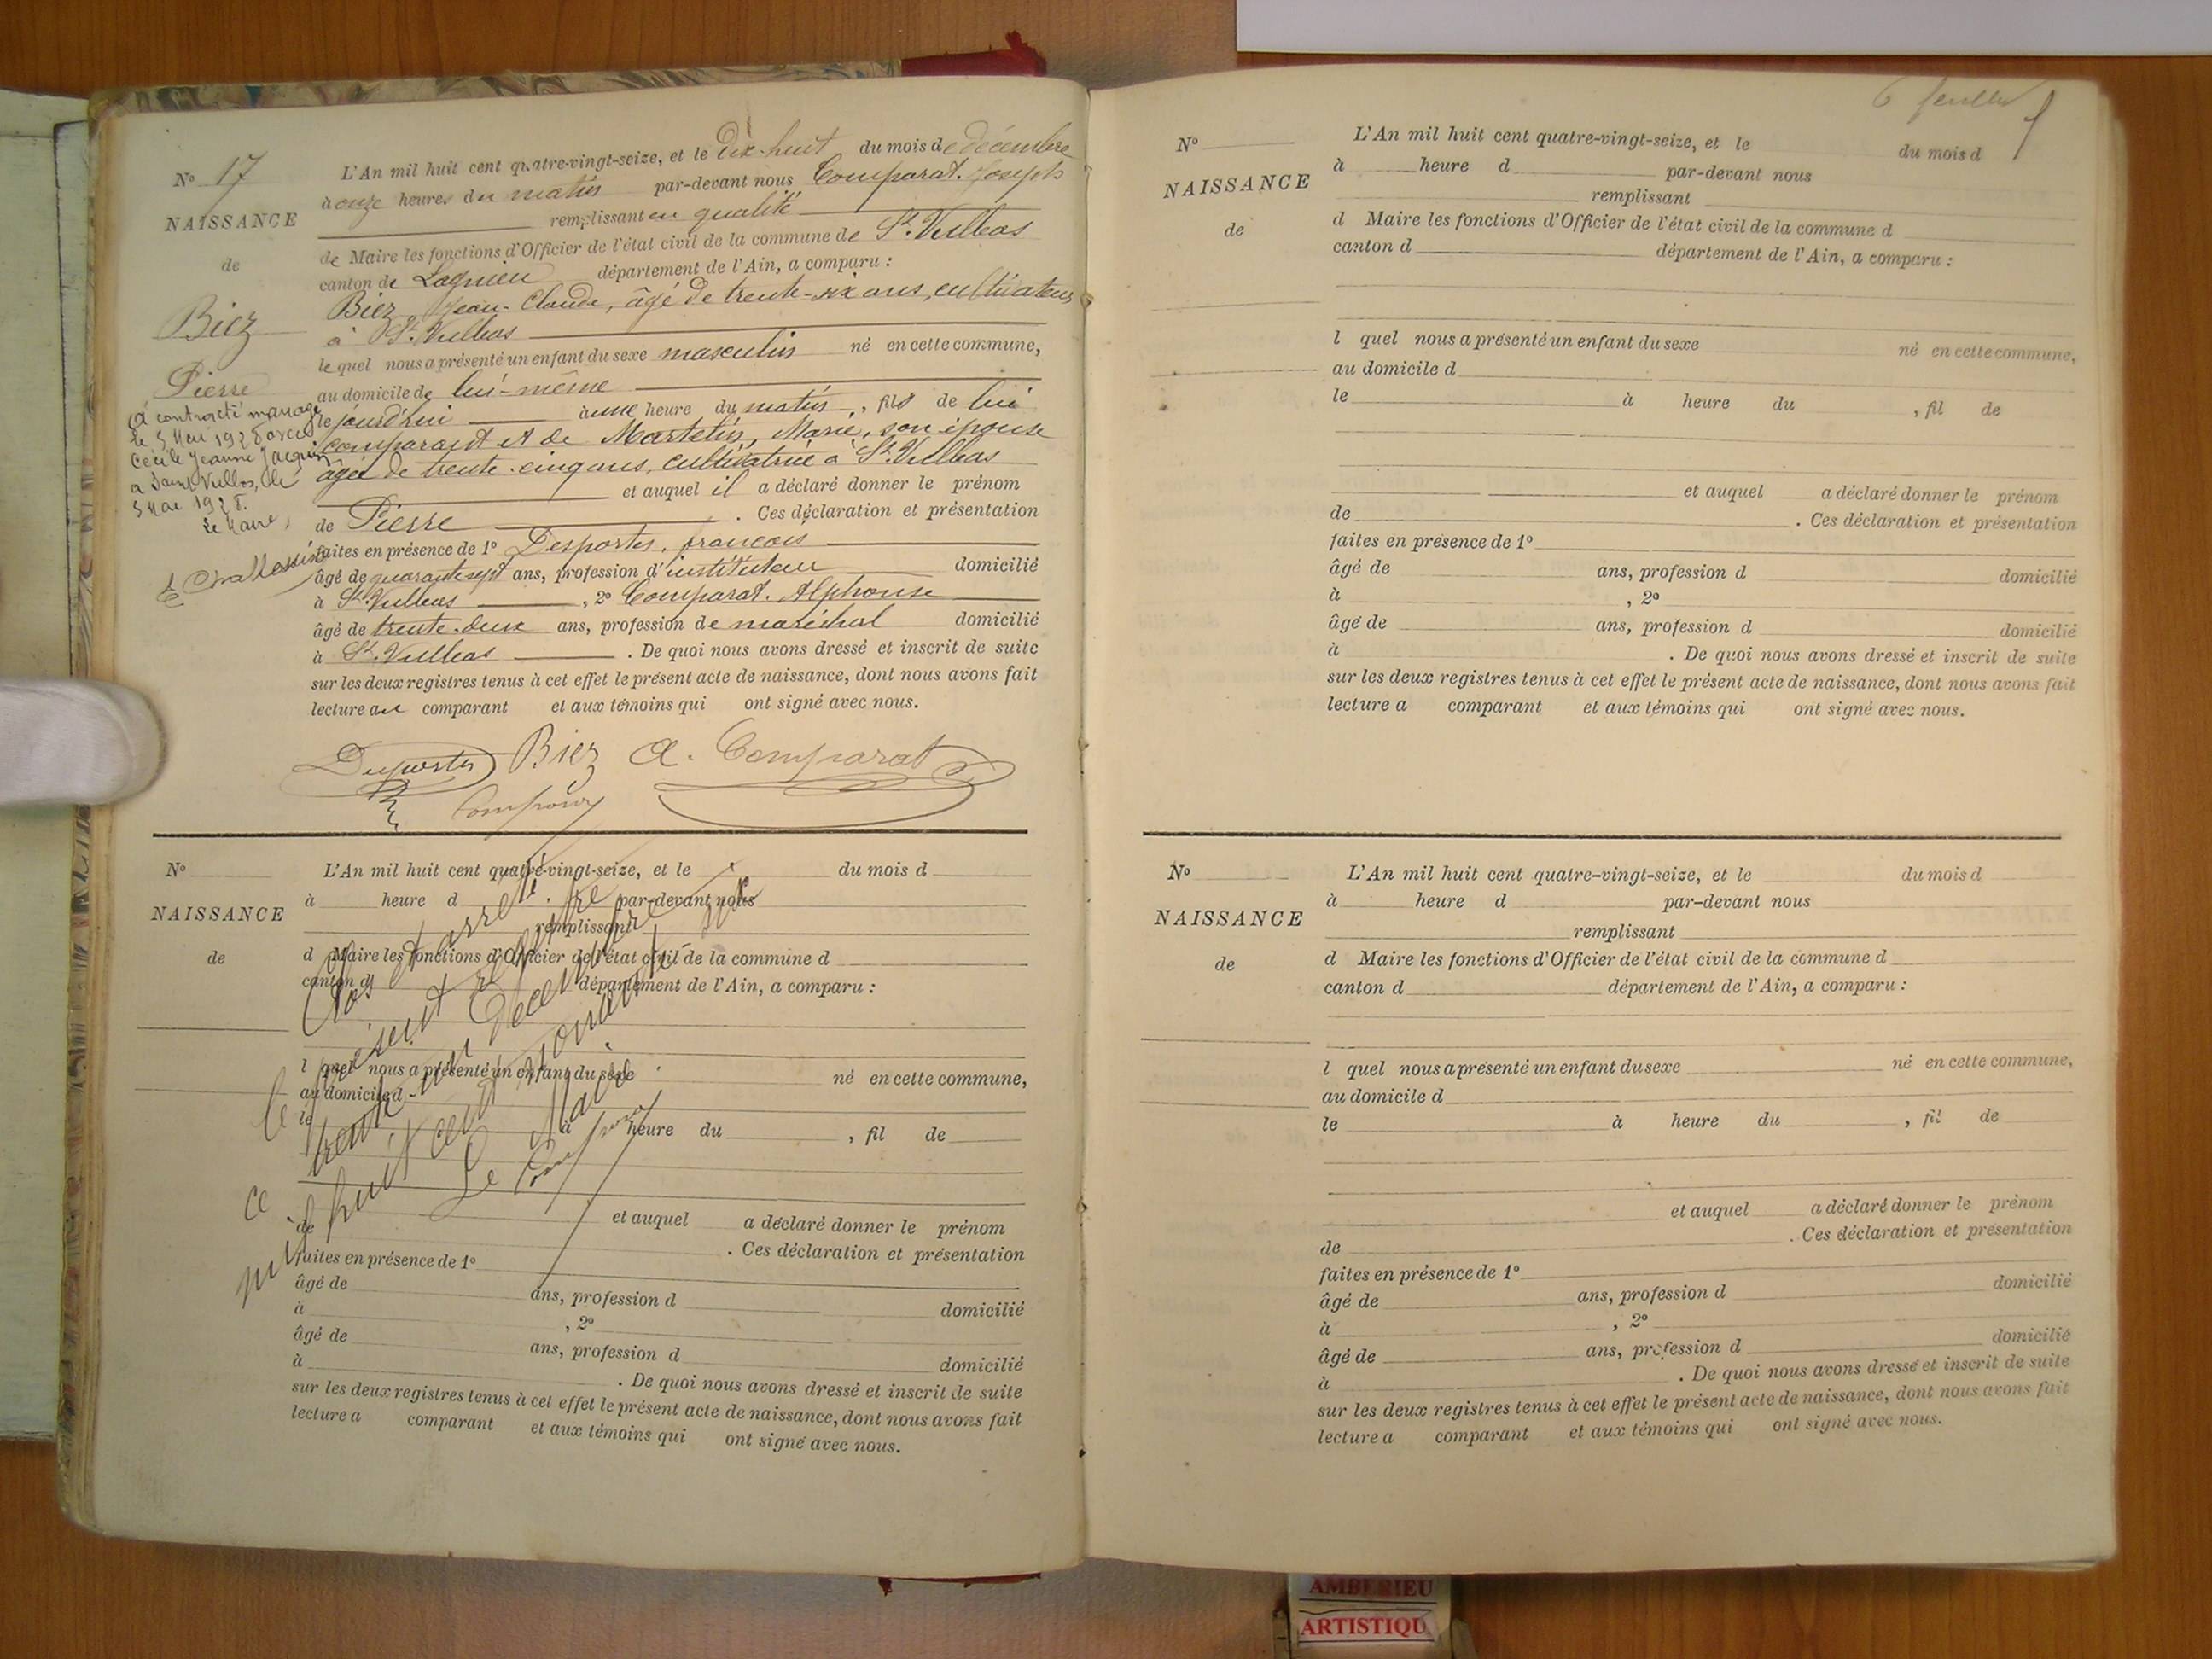 N° 17
NAISSANCE
de
Biez
Pierre
a contracté mariage
le 5 Mai 1928 avec
Cécile Jeanne Jacquin
à Saint Vulbas, le
5 Mai 1928.
Le Maire,
L'An mil huit cent quatre-vingt-seize, et le Dix-huit du mois de décembre
à onze heures du matin par-devant nous Comparat. Joseph
remplissant en qualité
de Maire les fonctions d'Officier de l'état civil de la commune de St. Vulbas
canton de Lagnieu département de l'Ain, a comparu :
Biez Jean-Claude, âgé de trente-six ans, cultivateur
à St. Vulbas
lequel nous a présenté un enfant du sexe masculin né en cette commune,
au domicile de lui-même
le jourd'hui à une heure du matin, fils de lui
comparant et de Martelin, Marie, son épouse
âgée de trente-cinq ans, cultivatrice à St. Vulbas
et auquel il a déclaré donner le prénom
de Pierre . Ces déclaration et présentation
faites en présence de 1° Desportes, françois
âgé de quarante sept ans, profession d'instituteur domicilié
à St. Vulbas , 2° Comparat. Alphonse
âgé de trente-deux ans, profession de maréchal domicilié
à St. Vulbas . De quoi nous avons dressé et inscrit de suite
sur les deux registres tenus à cet effet le présent acte de naissance, dont nous avons fait
lecture au comparant et aux témoins qui ont signé avec nous.
Desportes Biez A. Comparat
N°
NAISSANCE
de
L'An mil huit cent quatre-vingt-seize, et le du mois d
à heure d par-devant nous
remplissant
d Maire les fonctions d'Officier de l'état civil de la commune d
canton d département de l'Ain, a comparu :
l quel nous a présenté un enfant du sexe né en cette commune,
au domicile d
le à heure du , fil de
et auquel a déclaré donner le prénom
de . Ces déclaration et présentation
faites en présence de 1°
âgé de ans, profession d domicilié
à , 2°
âgé de ans, profession d domicilié
à . De quoi nous avons dressé et inscrit de suite
sur les deux registres tenus à cet effet le présent acte de naissance, dont nous avons fait
lecture a comparant et aux témoins qui ont signé avec nous.
Clos et arrêté
le présent registre
ce trente-un Décembre
mil huit cent nonante six
Le Maire
6 feuillets
N°
NAISSANCE
de
L'An mil huit cent quatre-vingt-seize, et le du mois d
à heure d par-devant nous
remplissant
d Maire les fonctions d'Officier de l'état civil de la commune d
canton d département de l'Ain, a comparu :
l quel nous a présenté un enfant du sexe né en cette commune,
au domicile d
le à heure du , fil de
et auquel a déclaré donner le prénom
de . Ces déclaration et présentation
faites en présence de 1°
âgé de ans, profession d domicilié
à , 2°
âgé de ans, profession d domicilié
à . De quoi nous avons dressé et inscrit de suite
sur les deux registres tenus à cet effet le présent acte de naissance, dont nous avons fait
lecture a comparant et aux témoins qui ont signé avec nous.
N°
NAISSANCE
de
L'An mil huit cent quatre-vingt-seize, et le du mois d
à heure d par-devant nous
remplissant
d Maire les fonctions d'Officier de l'état civil de la commune d
canton d département de l'Ain, a comparu :
l quel nous a présenté un enfant du sexe né en cette commune,
au domicile d
le à heure du , fil de
et auquel a déclaré donner le prénom
de . Ces déclaration et présentation
faites en présence de 1°
âgé de ans, profession d domicilié
à , 2°
âgé de ans, profession d domicilié
à . De quoi nous avons dressé et inscrit de suite
sur les deux registres tenus à cet effet le présent acte de naissance, dont nous avons fait
lecture a comparant et aux témoins qui ont signé avec nous.
AMBERIEU
ARTISTIQU